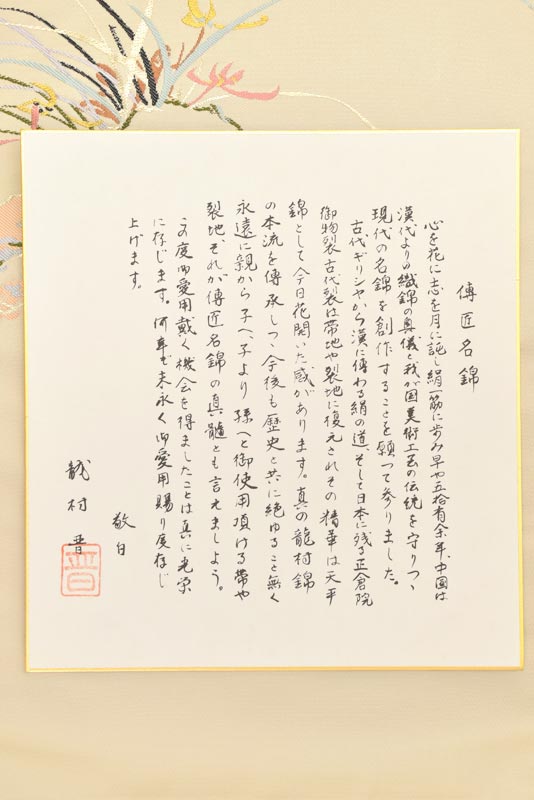 傳匠名錦
心を花に志を月に託し絹一筋に歩み早や五拾有余年、中国は
漢代よりの織錦の奥儀と我が国美術工芸の伝統を守りつゝ
現代の名錦を創作することを願って参りました。
古代ギリシヤから漢に傳わる絹の道、そして日本に残る正倉院
御物裂古代裂は帯地や裂地に復元されその精華は天平
錦として今日花開いた感があります。真の龍村錦
の本流を傳承しつゝ今後も歴史と共に絶ゆること無く
永遠に親から子へ、子より孫へと御使用頂ける帯や
裂地、それが傳匠名錦の真髄とも言えましょう。
この度御愛用戴く機会を得ましたことは真に光栄
に存じます。何卒末永く御愛用賜り度存じ
上げます。
敬白
龍村晋
晋